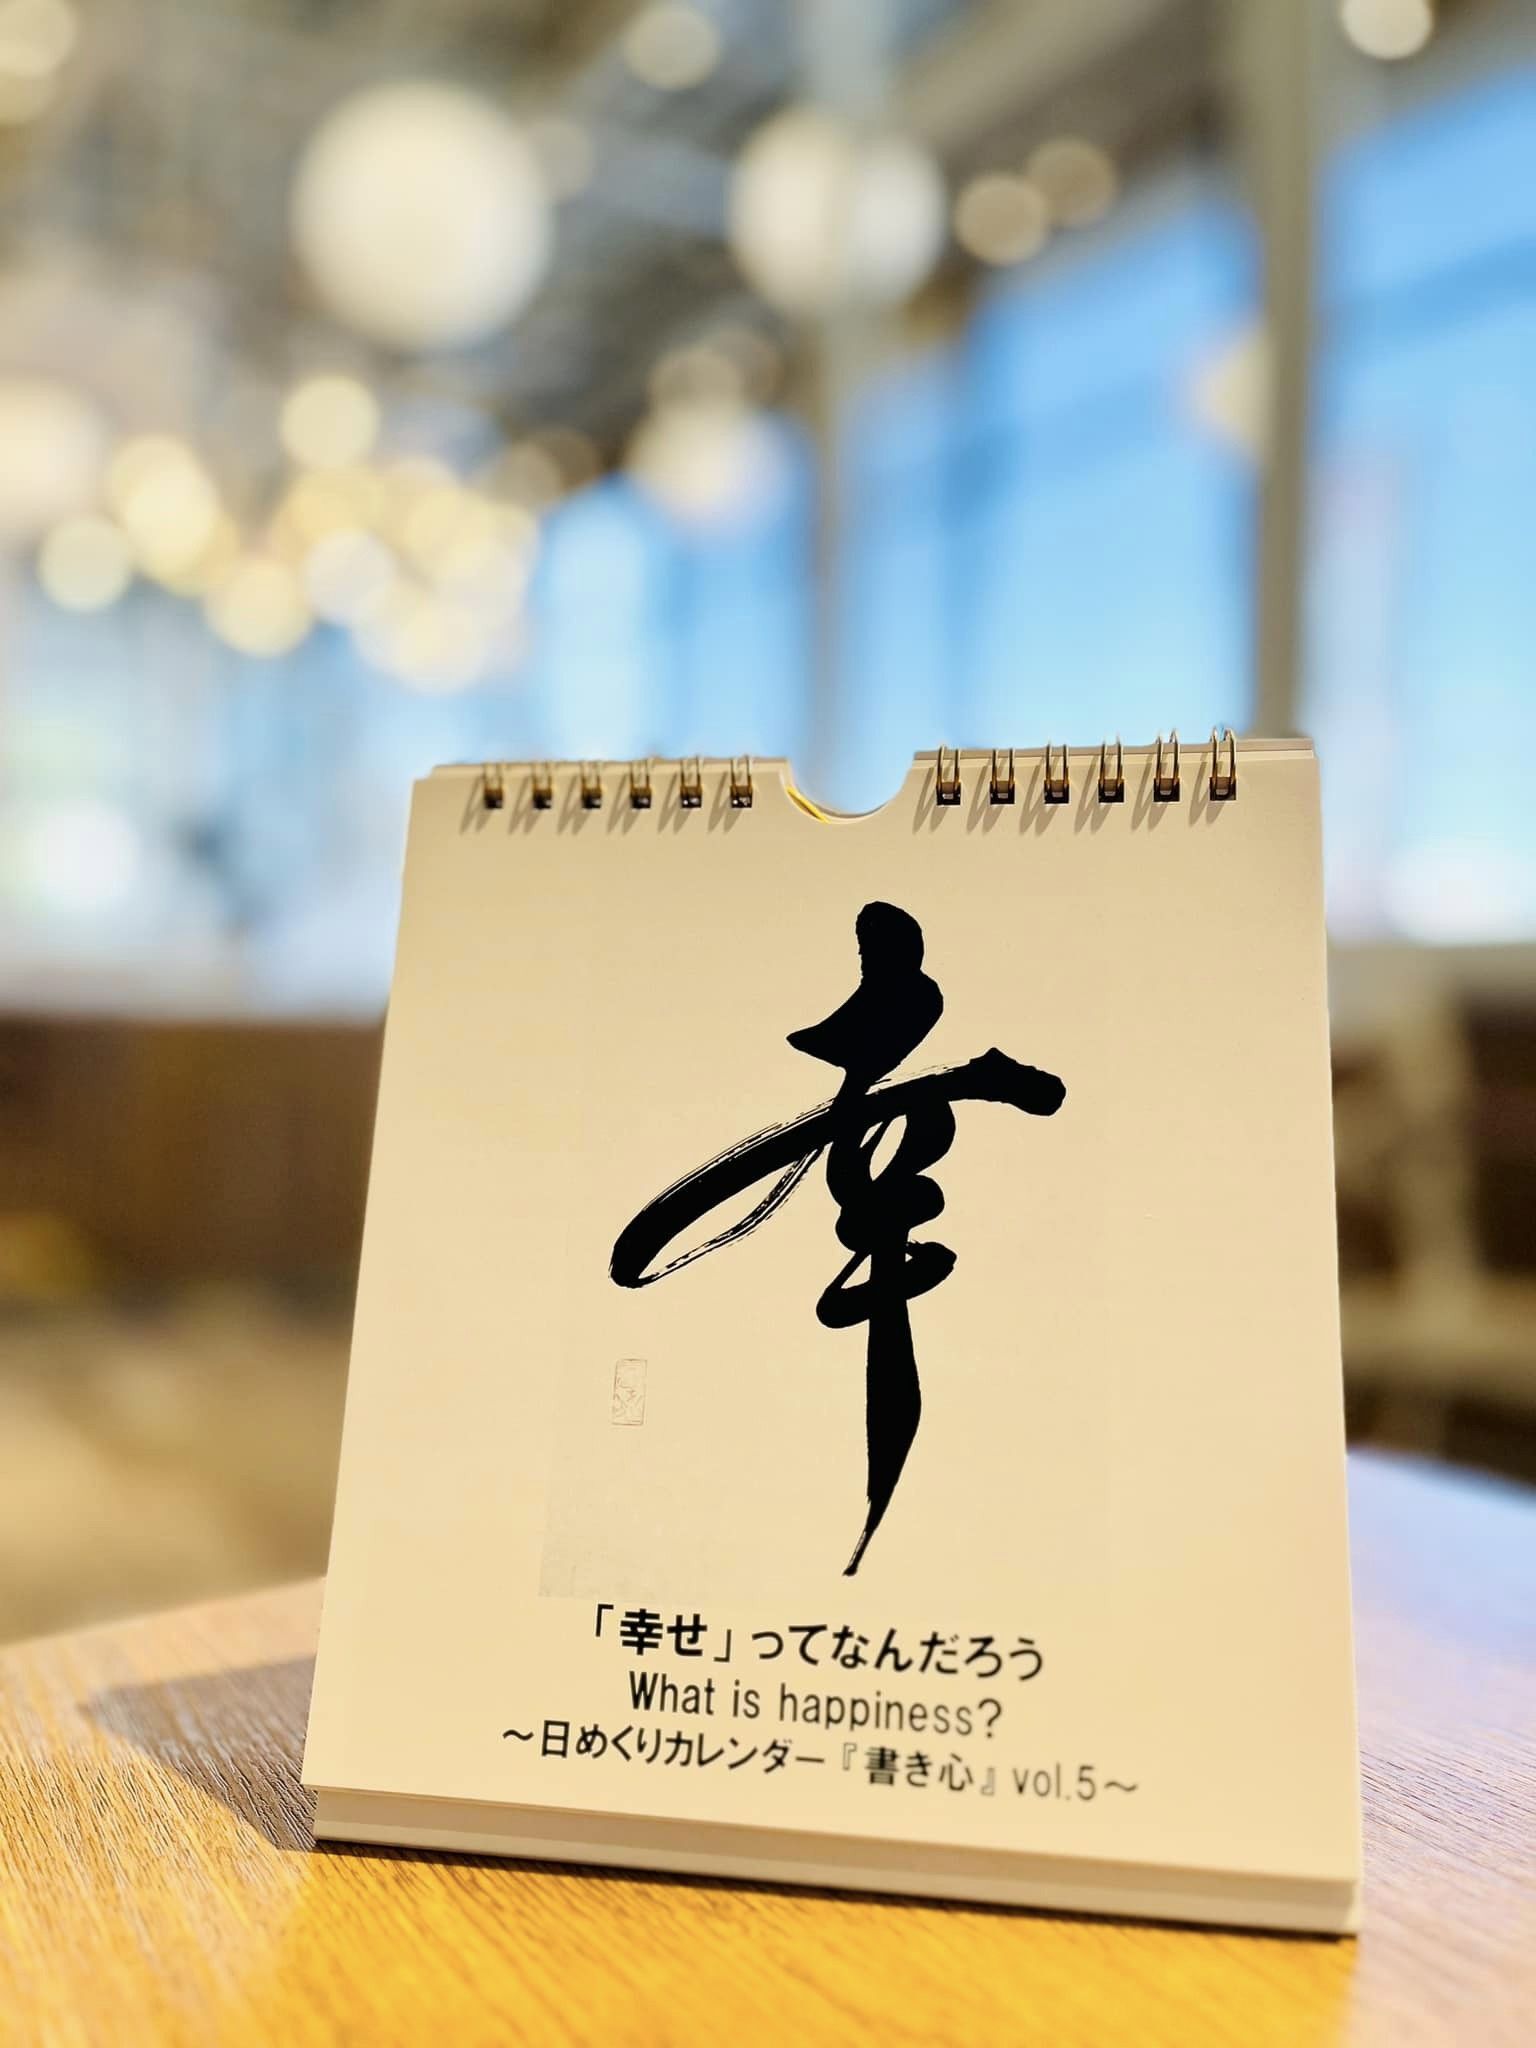 幸
「幸せ」ってなんだろう
What is happiness?
～日めくりカレンダー『書き心』vol.5～